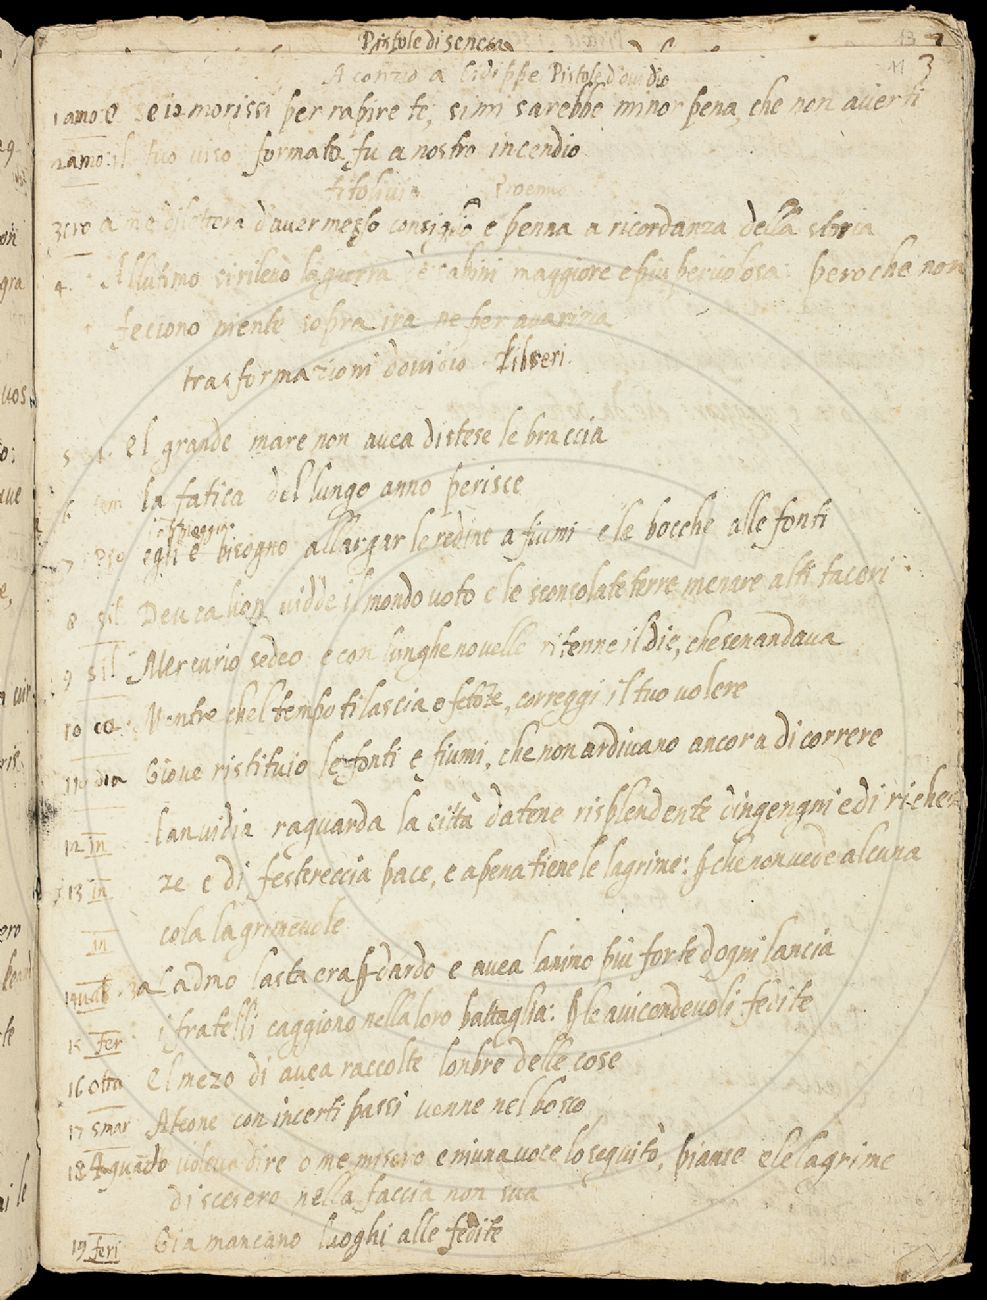 Pistole di seneca
13
11 3
Aconzio a Cidippe Pistole d'ovidio
1 amo e se io morissi per rapire te, si mi sarebbe minor pena, che non averti
2 amo: il tuo viso formato fu a nostro incendio
titolivi Proemio
3 cro a me diletterà d'aver messo consiglio e penna a ricordanza della storia
4. Allultimo si rilevò la guerra de sabini maggiore e piu pericolosa: pero che non
feciono niente sopra ira ne per avarizia
trasformazioni dovidio
5 el grande mare non avea distese le braccia
6 tem la fatica del lungo anno perisce
7 egli è bisogno allargar le redine a fiumi e le bocche alle fonti
8 sil Deucalion vidde il mondo voto e le sconsolate terre menare alti taceri
9 sil Mercurio sedeo e con lunghe novelle ritenne il die, che sen andava
10 co Mentre chel tempo ti lascia correggi il tuo volere
11 Giove ristituio le fonti e fiumi, che non ardivano ancora di correre
12 in lanvidia raguarda la città datene risplendente dingengni e di riche
13 in ze e di festereccia pace, e apena tiene le lagrime: che non vede alcuna
in cosa lagrimevole
14 Ladmo lasta era dardo e avea lanimo piu forte dogni lancia
15 fer i fratelli caggiono nella loro battaglia: le avicendevoli fedite
16 otta el mezo di avea raccolte lonbre delle cose
17 smar Ateone con incerti passi venne nel bosco
18 quando voleva dire o me misero e niuna voce lo seguitò, pianse e le lagrime
discesero nella faccia non sua
19 feri Gia mancano luoghi alle fedite